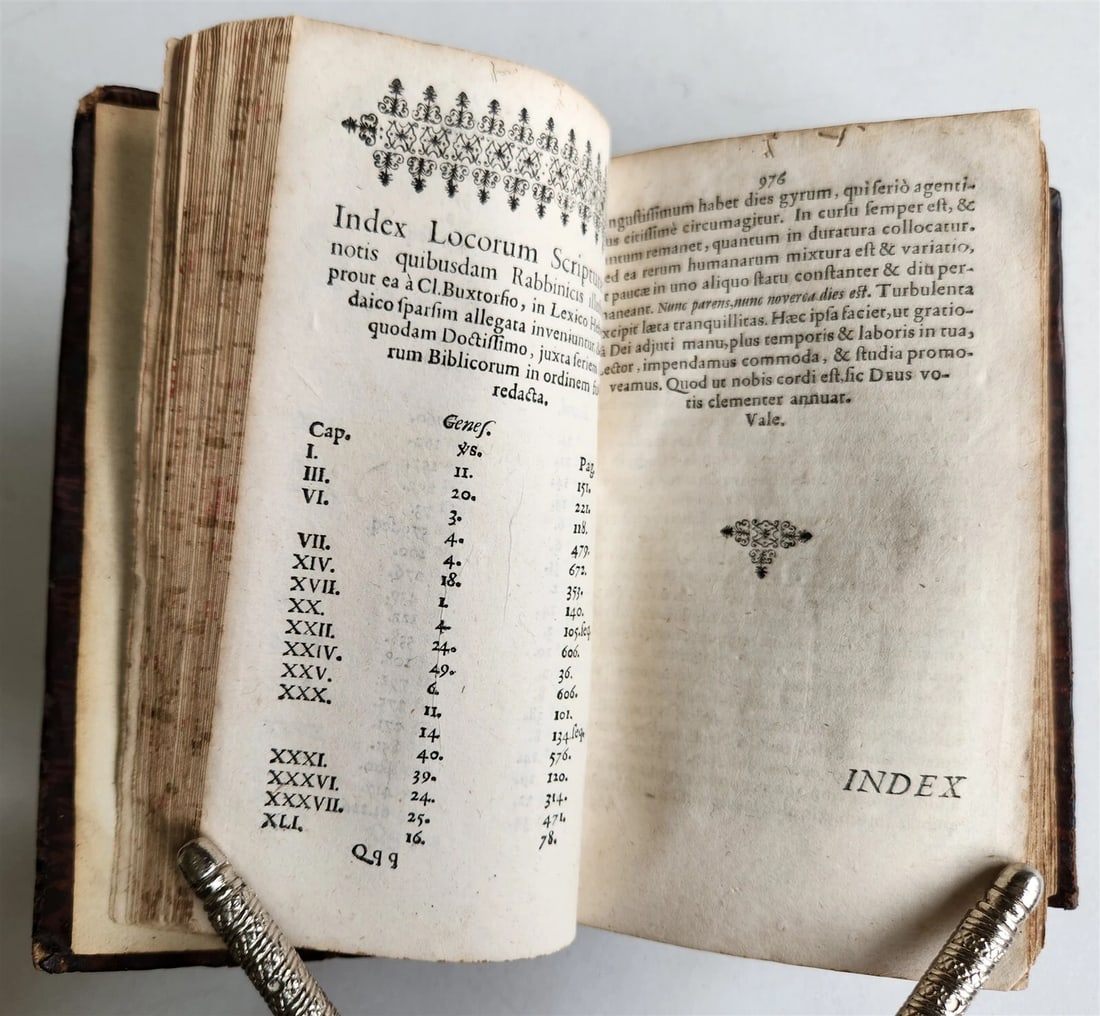 Index Locorum Scriptur
notis quibusdam Rabbinicis
prout ea à Cl. Buxtorfio, in Lexico
daico sparsim allegata inveniuntur,
quodam Doctissimo, juxta seriem
rum Biblicorum in ordinem
redacta.
Genes.
Cap. vs. Pag.
I. 11. 151.
III. 20. 221.
VI. 3. 118.
4. 479.
VII. 4. 672.
XIV. 18. 353.
XVII. 1. 140.
XX. 4. 105. seq
XXII. 24. 606.
XXIV. 49. 36.
XXV. 6. 606.
XXX. 11. 101.
14 134. seq.
40. 576.
XXXI. 39. 120.
XXXVI. 24. 314.
XXXVII. 25. 471.
XLI. 16. 78.
Qqq
976
ngustissimum habet dies gyrum, qui seriò agenti-
us citissimè circumagitur. In cursu semper est, &
ntum remanet, quantum in duratura collocatur.
ed ea rerum humanarum mixtura est & variatio,
t paucæ in uno aliquo statu constanter & diu per-
naneant. Nunc parens, nunc noverca dies est. Turbulenta
xcipit læta tranquillitas. Hæc ipsa faciet, ut gratio-
â Dei adjuti manu, plus temporis & laboris in tua,
ector, impendamus commoda, & studia promo-
veamus. Quod ut nobis cordi est, sic DEUS vo-
tis clementer annuat.
Vale.
INDEX